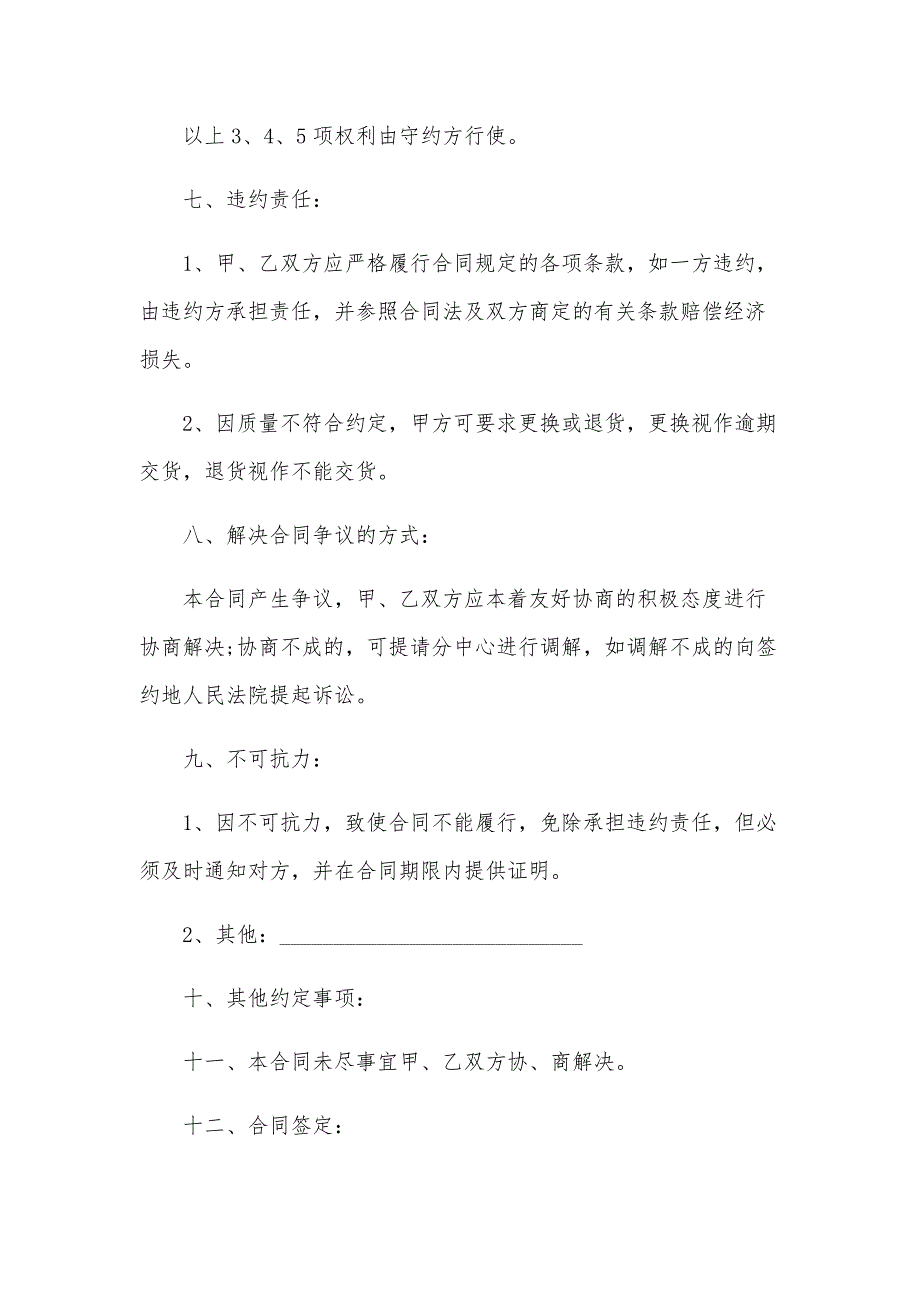 以上 3、4、5 项权利由守约方行使。
七、违约责任：
1、甲、乙双方应严格履行合同规定的各项条款，如一方违约，
由违约方承担责任，并参照合同法及双方商定的有关条款赔偿经济
损失。
2、因质量不符合约定，甲方可要求更换或退货，更换视作逾期
交货，退货视作不能交货。
八、解决合同争议的方式：
本合同产生争议，甲、乙双方应本着友好协商的积极态度进行
协商解决;协商不成的，可提请分中心进行调解，如调解不成的向签
约地人民法院提起诉讼。
九、不可抗力：
1、因不可抗力，致使合同不能履行，免除承担违约责任，但必
须及时通知对方，并在合同期限内提供证明。
2、其他：____________________________
十、其他约定事项：
十一、本合同未尽事宜甲、乙双方协、商解决。
十二、合同签定：